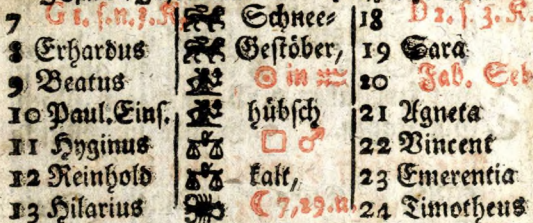 7 G 1. s. n. 3. K. Schnee= 18 D 2. s. 3. K.
8 Erhardus Gestöber, 19 Sara
9 Beatus ☉ in ♒ 20 Fab. Seb
10 Paul. Eins. hübsch 21 Agneta
11 Hyginus □ ♂ 22 Vincent
12 Reinhold kalt, 23 Emerentia
13 Hilarius ☾ 7, 29. n. 24 Timotheus